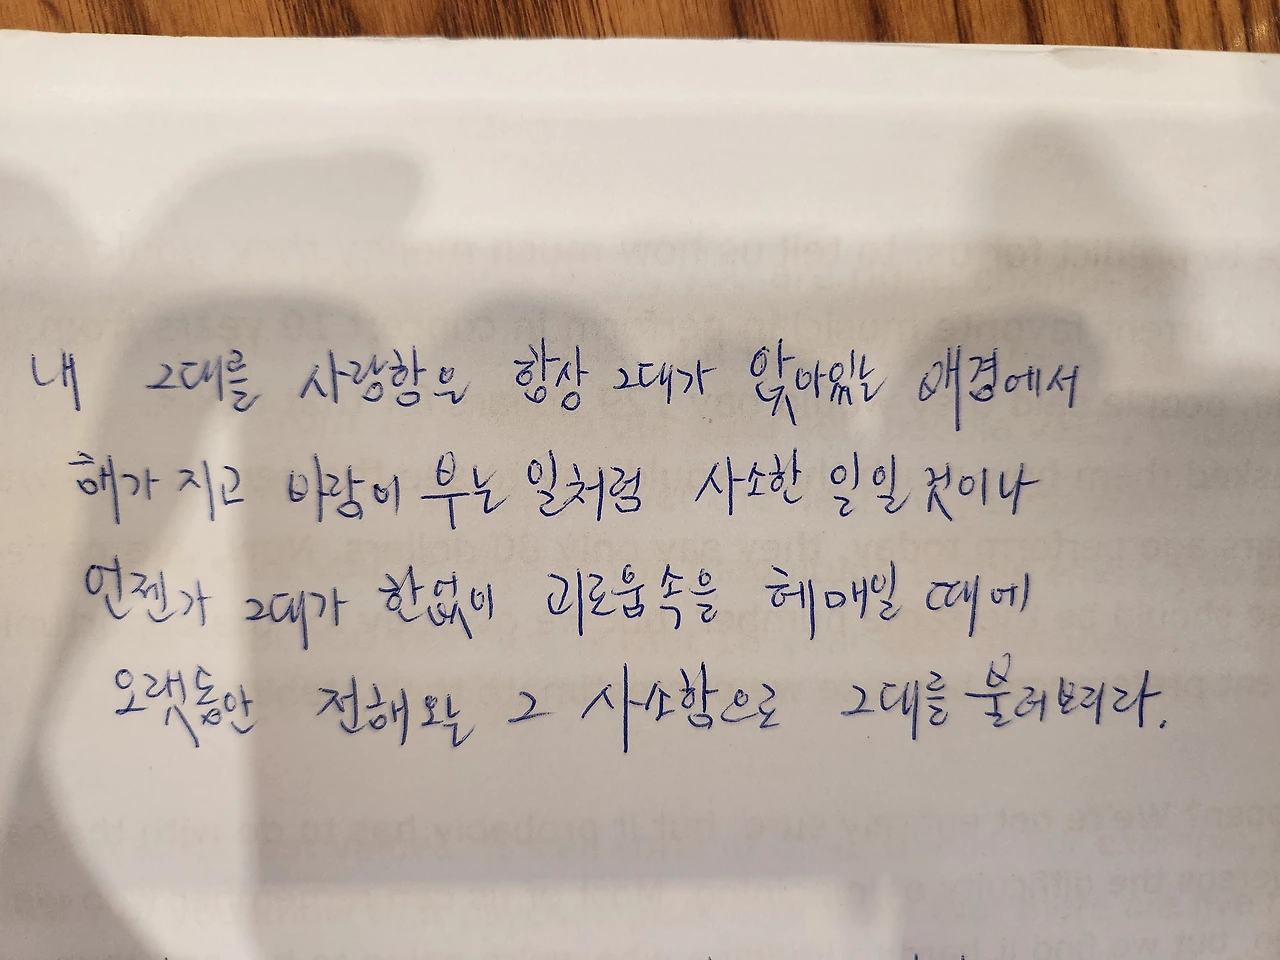 내 그대를 사랑함은 항상 그대가 앉아있는 배경에서
해가 지고 바람이 부는 일처럼 사소한 일일 것이나
언젠가 그대가 한없이 괴로움속을 헤매일 때에
오랫동안 전해오는 그 사소함으로 그대를 불러보리라.